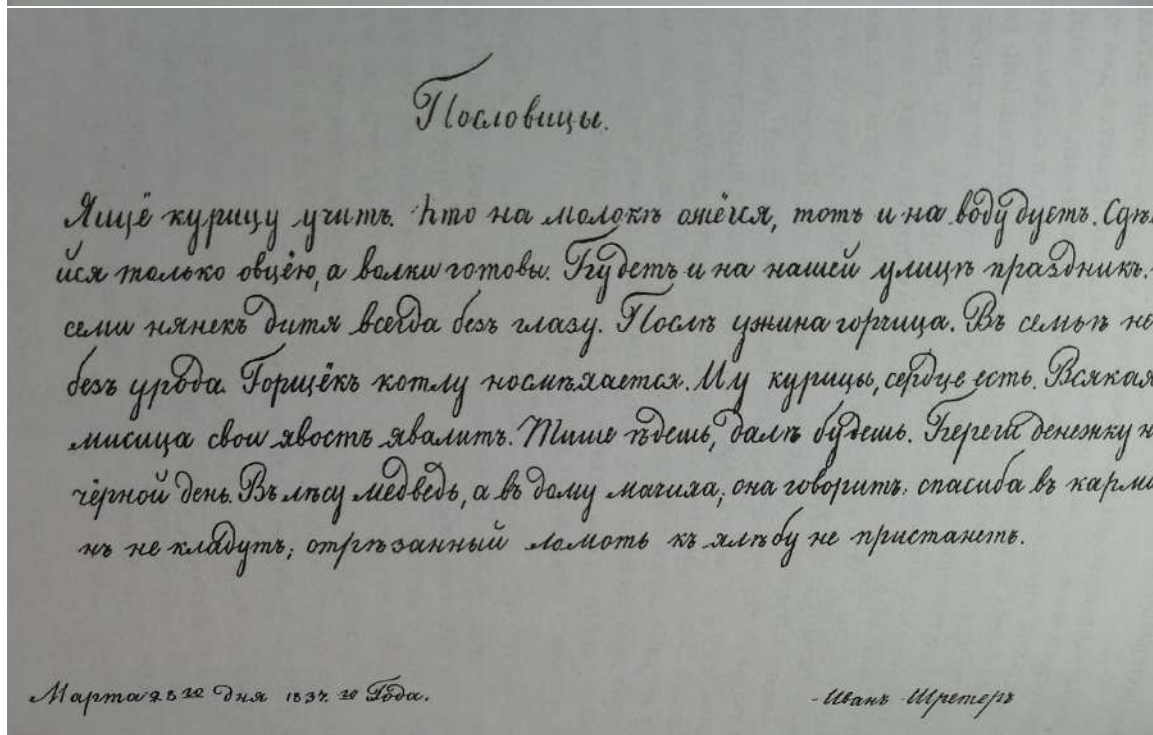 Пословицы.
Яицё курицу учитъ. Кто на молокѣ ожёгся, тотъ и на воду дуетъ. Сдѣ
йся только овцёю, а волки готовы. Будетъ и на нашей улицѣ праздникъ.
семи нянекъ дитя всегда безъ глазу. Послѣ ужина горчица. Въ семьѣ не
безъ урода. Горщёкъ котлу носмѣхается. И у курицы, сердце есть. Всякая
лисица свои хвостъ хвалитъ. Тише ѣдешь, далѣ будешь. Береги денежку н
чёрной день. Въ лѣсу медведь, а въ дому мачиха; она говоритъ: спасиба въ карма
нъ не кладутъ; отрѣзанный ломоть къ хлѣбу не пристанетъ.
Марта 28 го дня 1837. го Года.
Иванъ Шретеръ